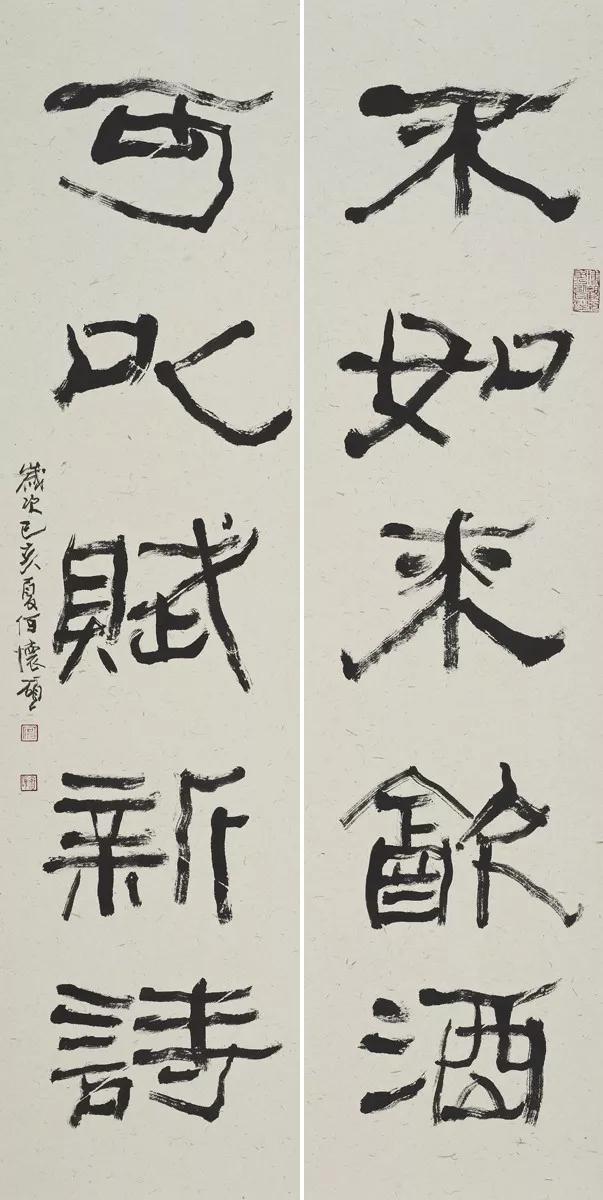 不如來飲酒
可以賦新詩
歲次己亥夏何懷碩